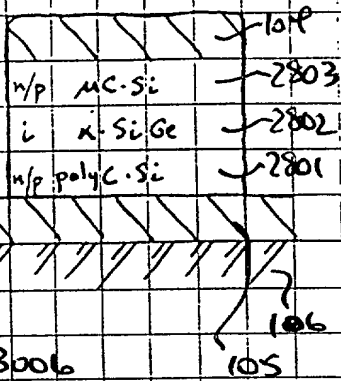 104
n/p μC-Si 2803
i α-SiGe 2802
n/p polyC-Si 2801
106
3006 105